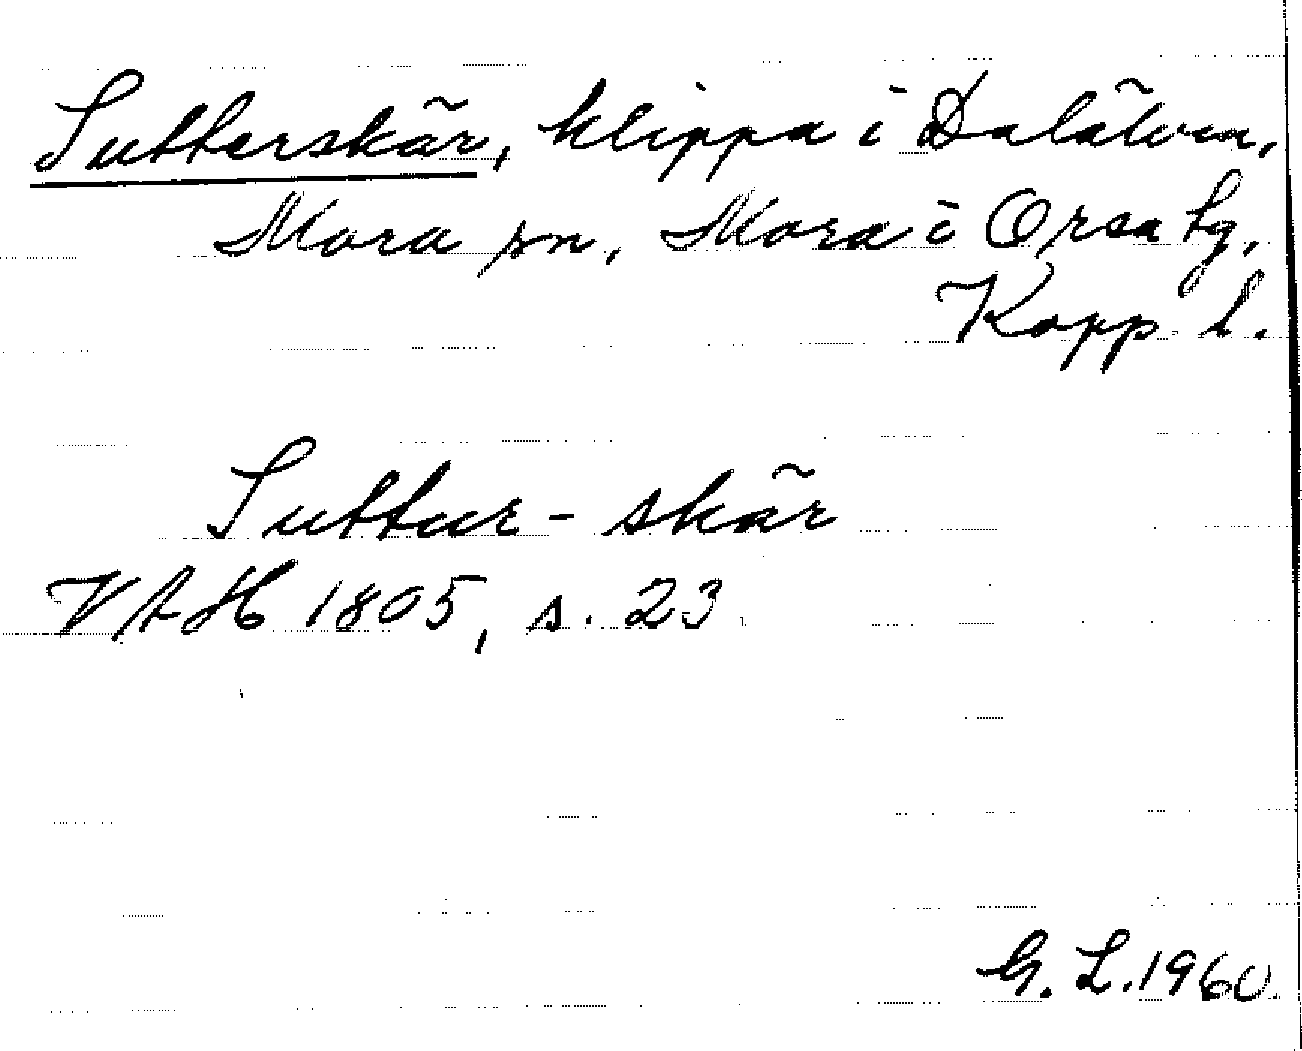 Sutterskär, klippa i Dalälven,
Mora sn, Mora i Orsa tg,
Kopp. l.
Suttur-skär
VAH 1805, s. 23
G. L. 1960.